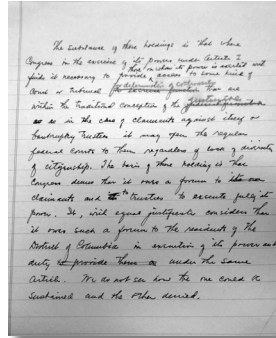 The substance of these holdings is that where
Congress in the exercise of its powers under Article I
finds it necessary to provide access to some kind of
court or tribunal for determination of controversies that are
within the traditional conception of the
as in the case of claimants against
bankruptcy trustees it may open the regular
federal courts to them regardless of lack of diversity
of citizenship. The basis of these holdings is that
Congress deems that it owes a forum to
claimants and to trustees to execute fully its
power. It, with equal justification considers that
it owes such a forum to the residents of the
District of Columbia in execution of its power and
duty under the same
Article. We do not see how the one could be
sustained and the other denied.